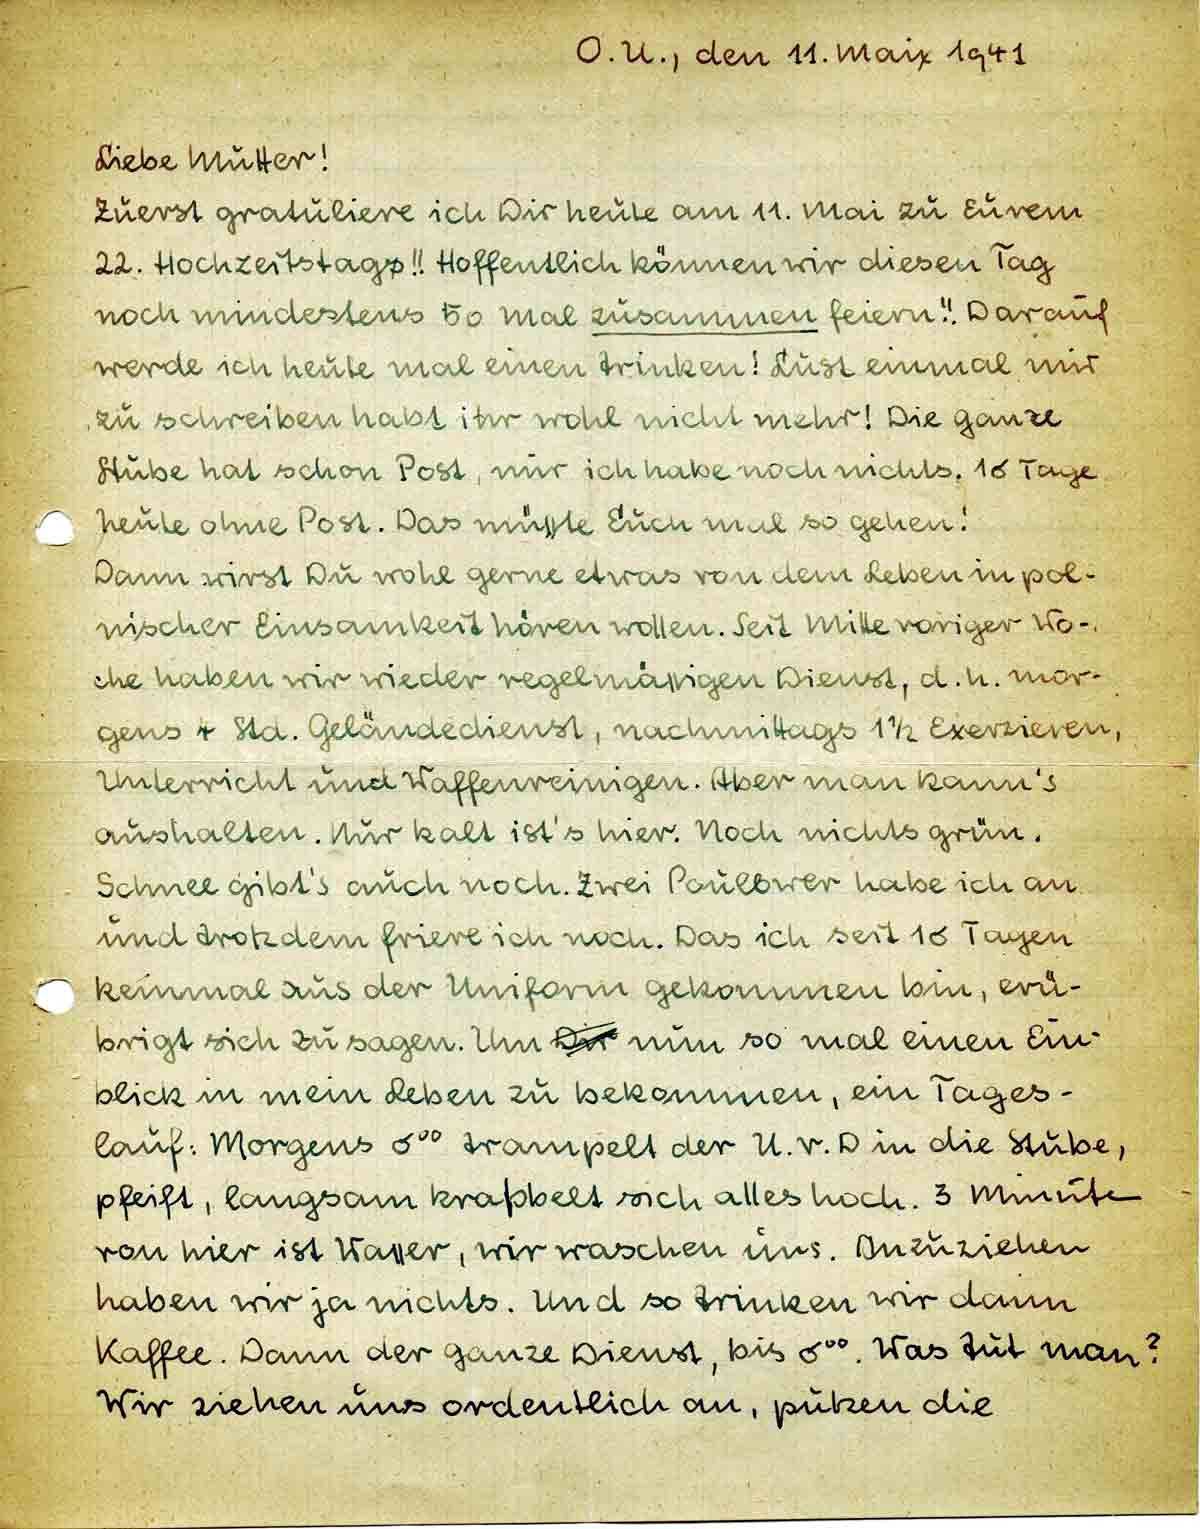 O.U., den 11. Maix 1941
Liebe Mutter!
Zuerst gratuliere ich Dir heute am 11. Mai zu Eurem
22. Hochzeitstage!! Hoffentlich können wir diesen Tag
noch mindestens 50 mal zusammen feiern!! Darauf
werde ich heute mal einen trinken! Lust einmal mir
zu schreiben habt ihr wohl nicht mehr! Die ganze
Stube hat schon Post, nur ich habe noch nichts. 16 Tage
heute ohne Post. Das müßte Euch mal so gehen!
Dann wirst Du wohl gerne etwas von dem Leben in pol-
nischer Einsamkeit hören wollen. Seit Mitte voriger Wo-
che haben wir wieder regelmäßigen Dienst, d.h. mor-
gens 4 Std. Geländedienst, nachmittags 1½ Exerzieren,
Unterricht und Waffenreinigen. Aber man kann's
aushalten. Nur kalt ist's hier. Noch nichts grün.
Schnee gibt's auch noch. Zwei Poullover habe ich an
und trotzdem friere ich noch. Das ich seit 16 Tagen
keinmal aus der Uniform gekommen bin, erü-
brigt sich zu sagen. Um Dir nun so mal einen Ein-
blick in mein Leben zu bekommen, ein Tages-
lauf: Morgens 6⁰⁰ trampelt der U.v.D in die Stube,
pfeift, langsam krabbelt sich alles hoch. 3 Minute
von hier ist Waßer, wir waschen uns. Anzuziehen
haben wir ja nichts. Und so trinken wir dann
Kaffee. Dann der ganze Dienst, bis 6⁰⁰. Was tut man?
Wir ziehen uns ordentlich an, putzen die